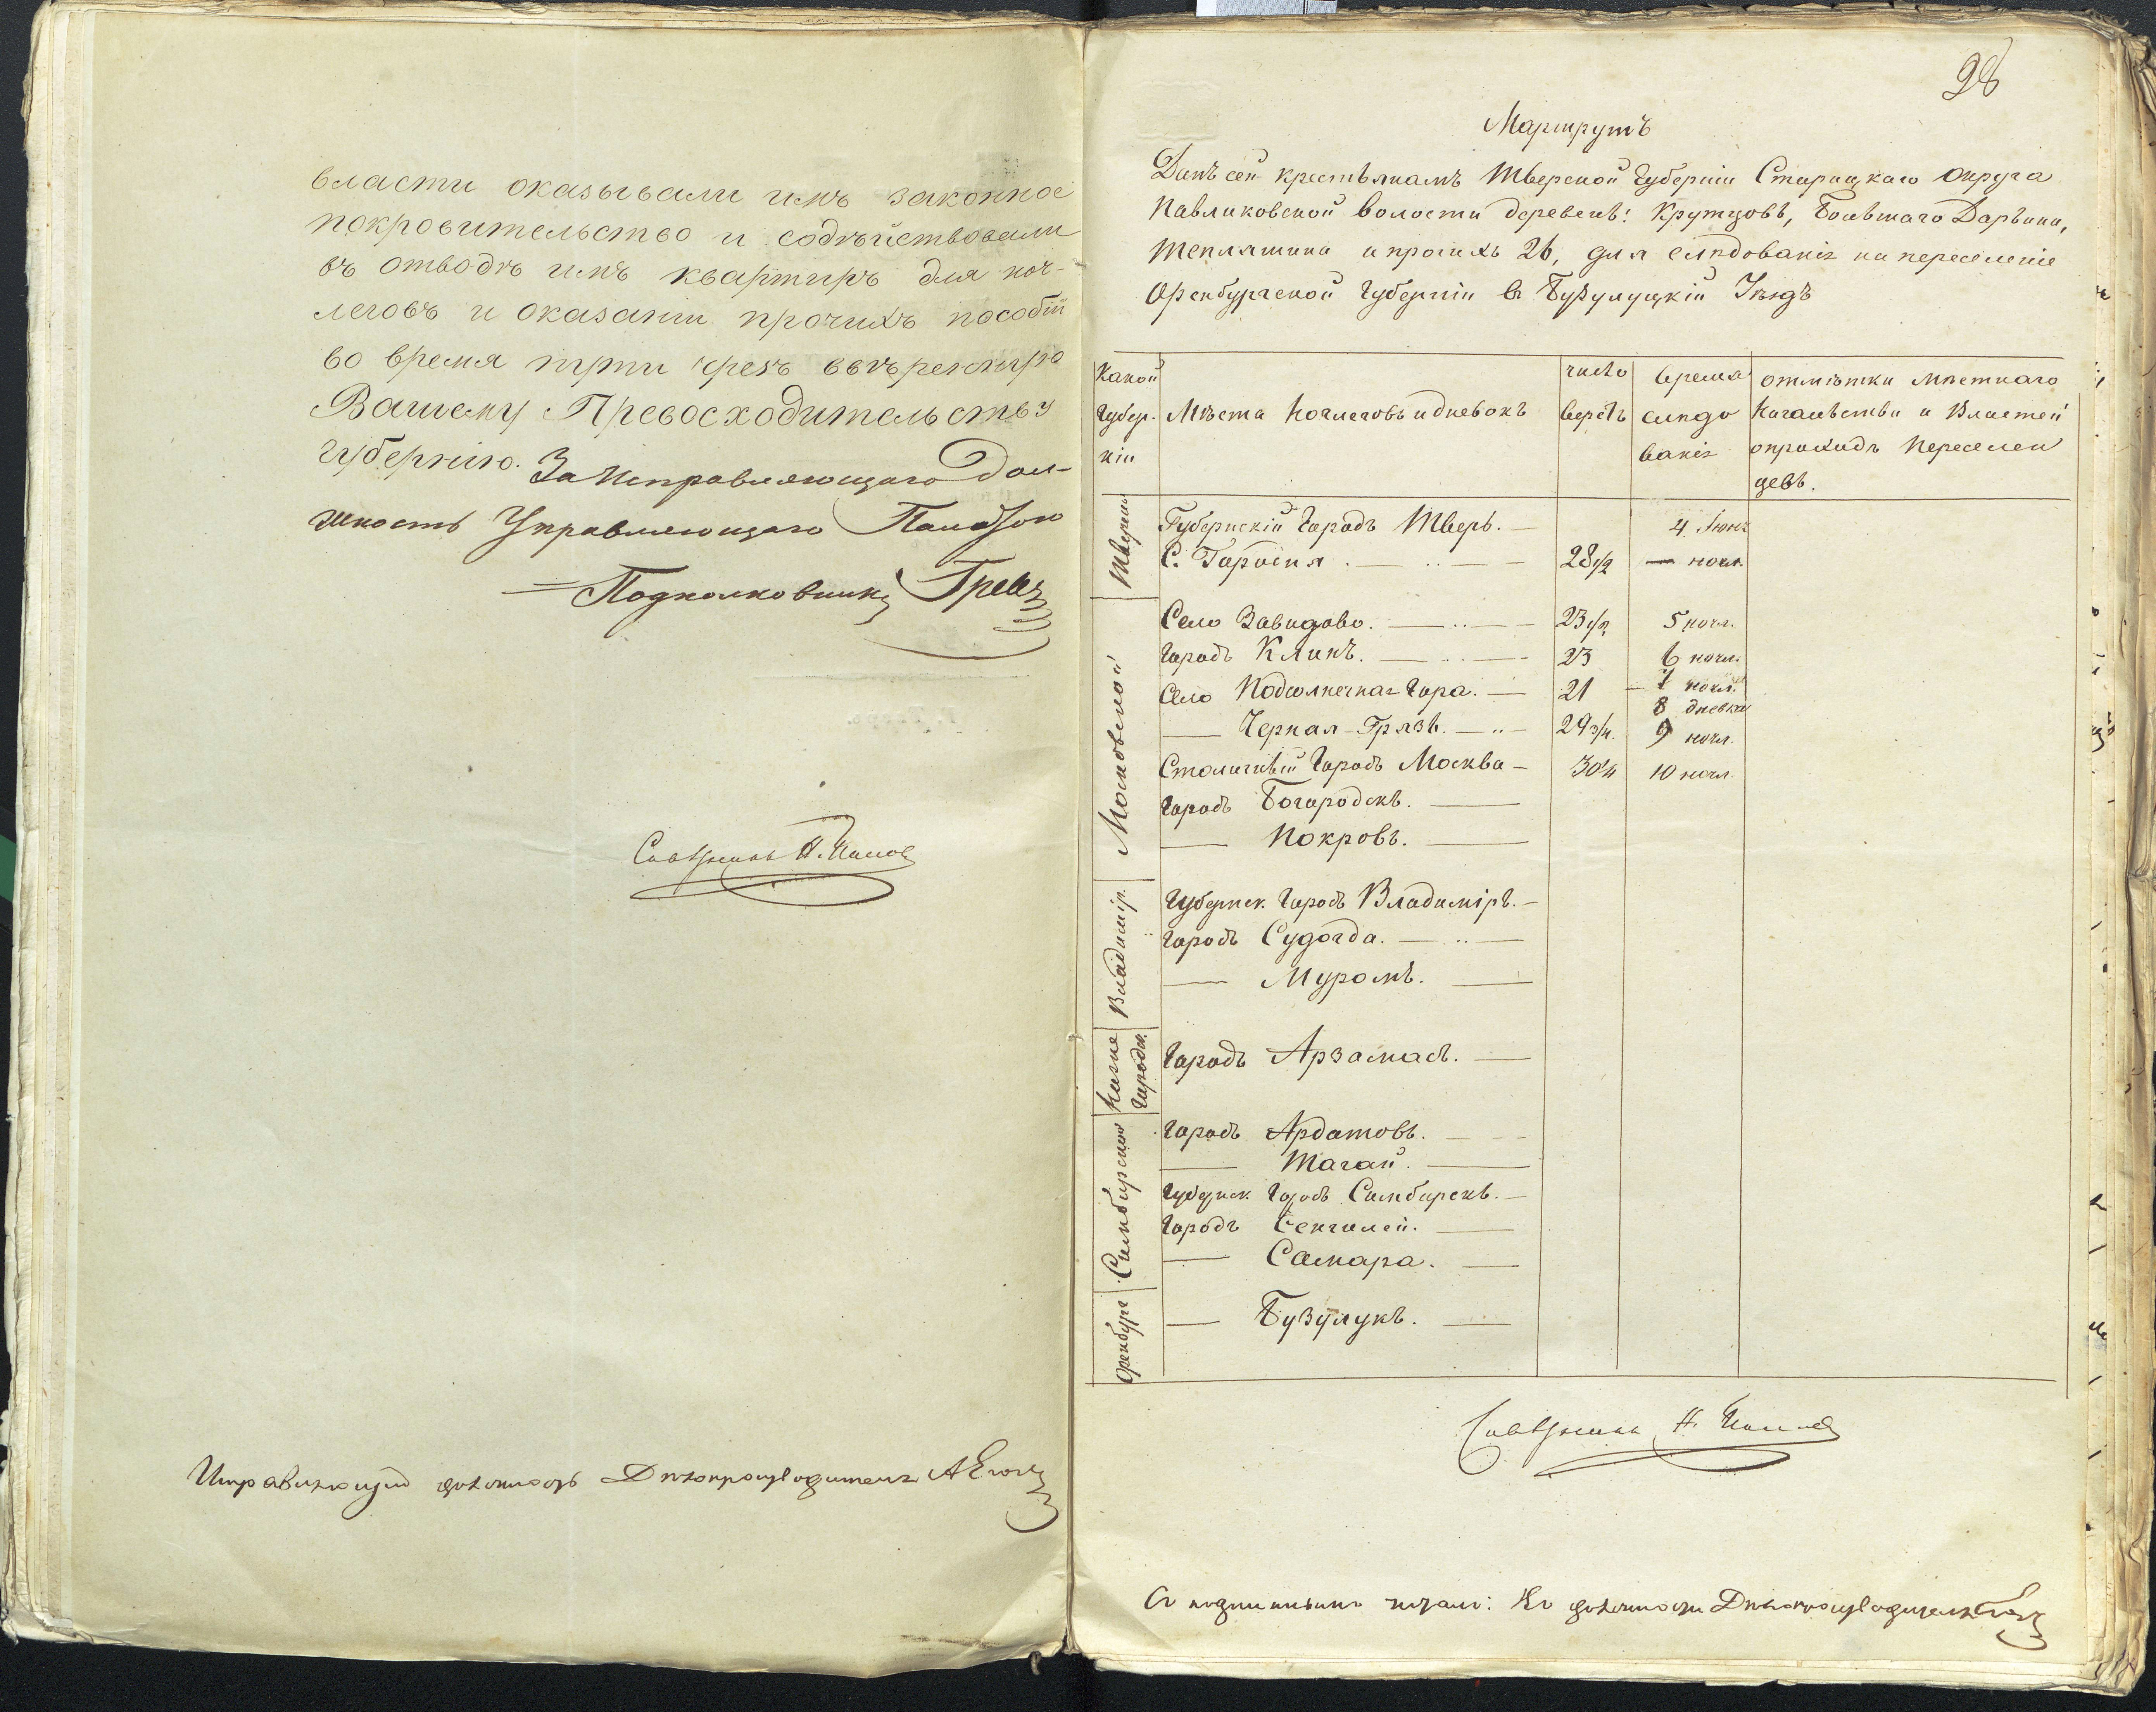 власти оказывали имъ законное
покровительство и содѣйствовали
въ отводѣ имъ квартиръ для ноч-
леговъ и оказаніи прочихъ пособій
во время пути чрезъ ввѣренную
Вашему Превосходительству
губернію. За Исправляющаго Дол-
жность Управляющаго Палатою
Подполковникъ
Совѣтникъ
Исправляющій должность Дѣлопроизводителя
98
Маршрутъ
Данъ сей крестьянамъ Тверской Губерніи Старицкаго Округа
Павликовской волости деревень: Крутцовъ, Большаго Дарьина,
Тепляшина и прочихъ 26, для слѣдованія на переселеніе
Оренбургской Губерніи въ Бузулуцкій Уѣздъ
Какой Губер- ніи
Мѣста Ночлеговъ и дневокъ
число верстъ
время слѣдо ванія
отмѣтки мѣстнаго Начальства и Властей о проходѣ Переселен цевъ.
Тверской
Губернскій Городъ Тверь. — 4 Іюня
С. Городня . — 28 1/2 — ночл.
Московской
Село Завидово. — 23 1/2 5 ночл.
Городъ Клинъ. — 23 6 ночл.
Село Подсолнечная Гора. — 21 — 7 ночл.
8 дневка
— Черная-Грязь. — 29 3/4. 9 ночл.
Столичный Городъ Москва — 30 1/4 10 ночл.
Городъ Богородскъ. —
— Покровъ. —
Владимір.
Губернск. Городъ Владиміръ. —
Городъ Судогда. —
— Муромъ. —
Нижне Городск.
Городъ Арзамасъ. —
Симбирской
Городъ Ардатовъ. —
— Тагай. —
Губернск. Городъ Симбирскъ. —
Городъ Сенгилей. —
— Самара. —
Оренбург
— Бузулукъ. —
Совѣтникъ
Съ подлиннымъ читалъ: Ис. должность Дѣлопроизводителя